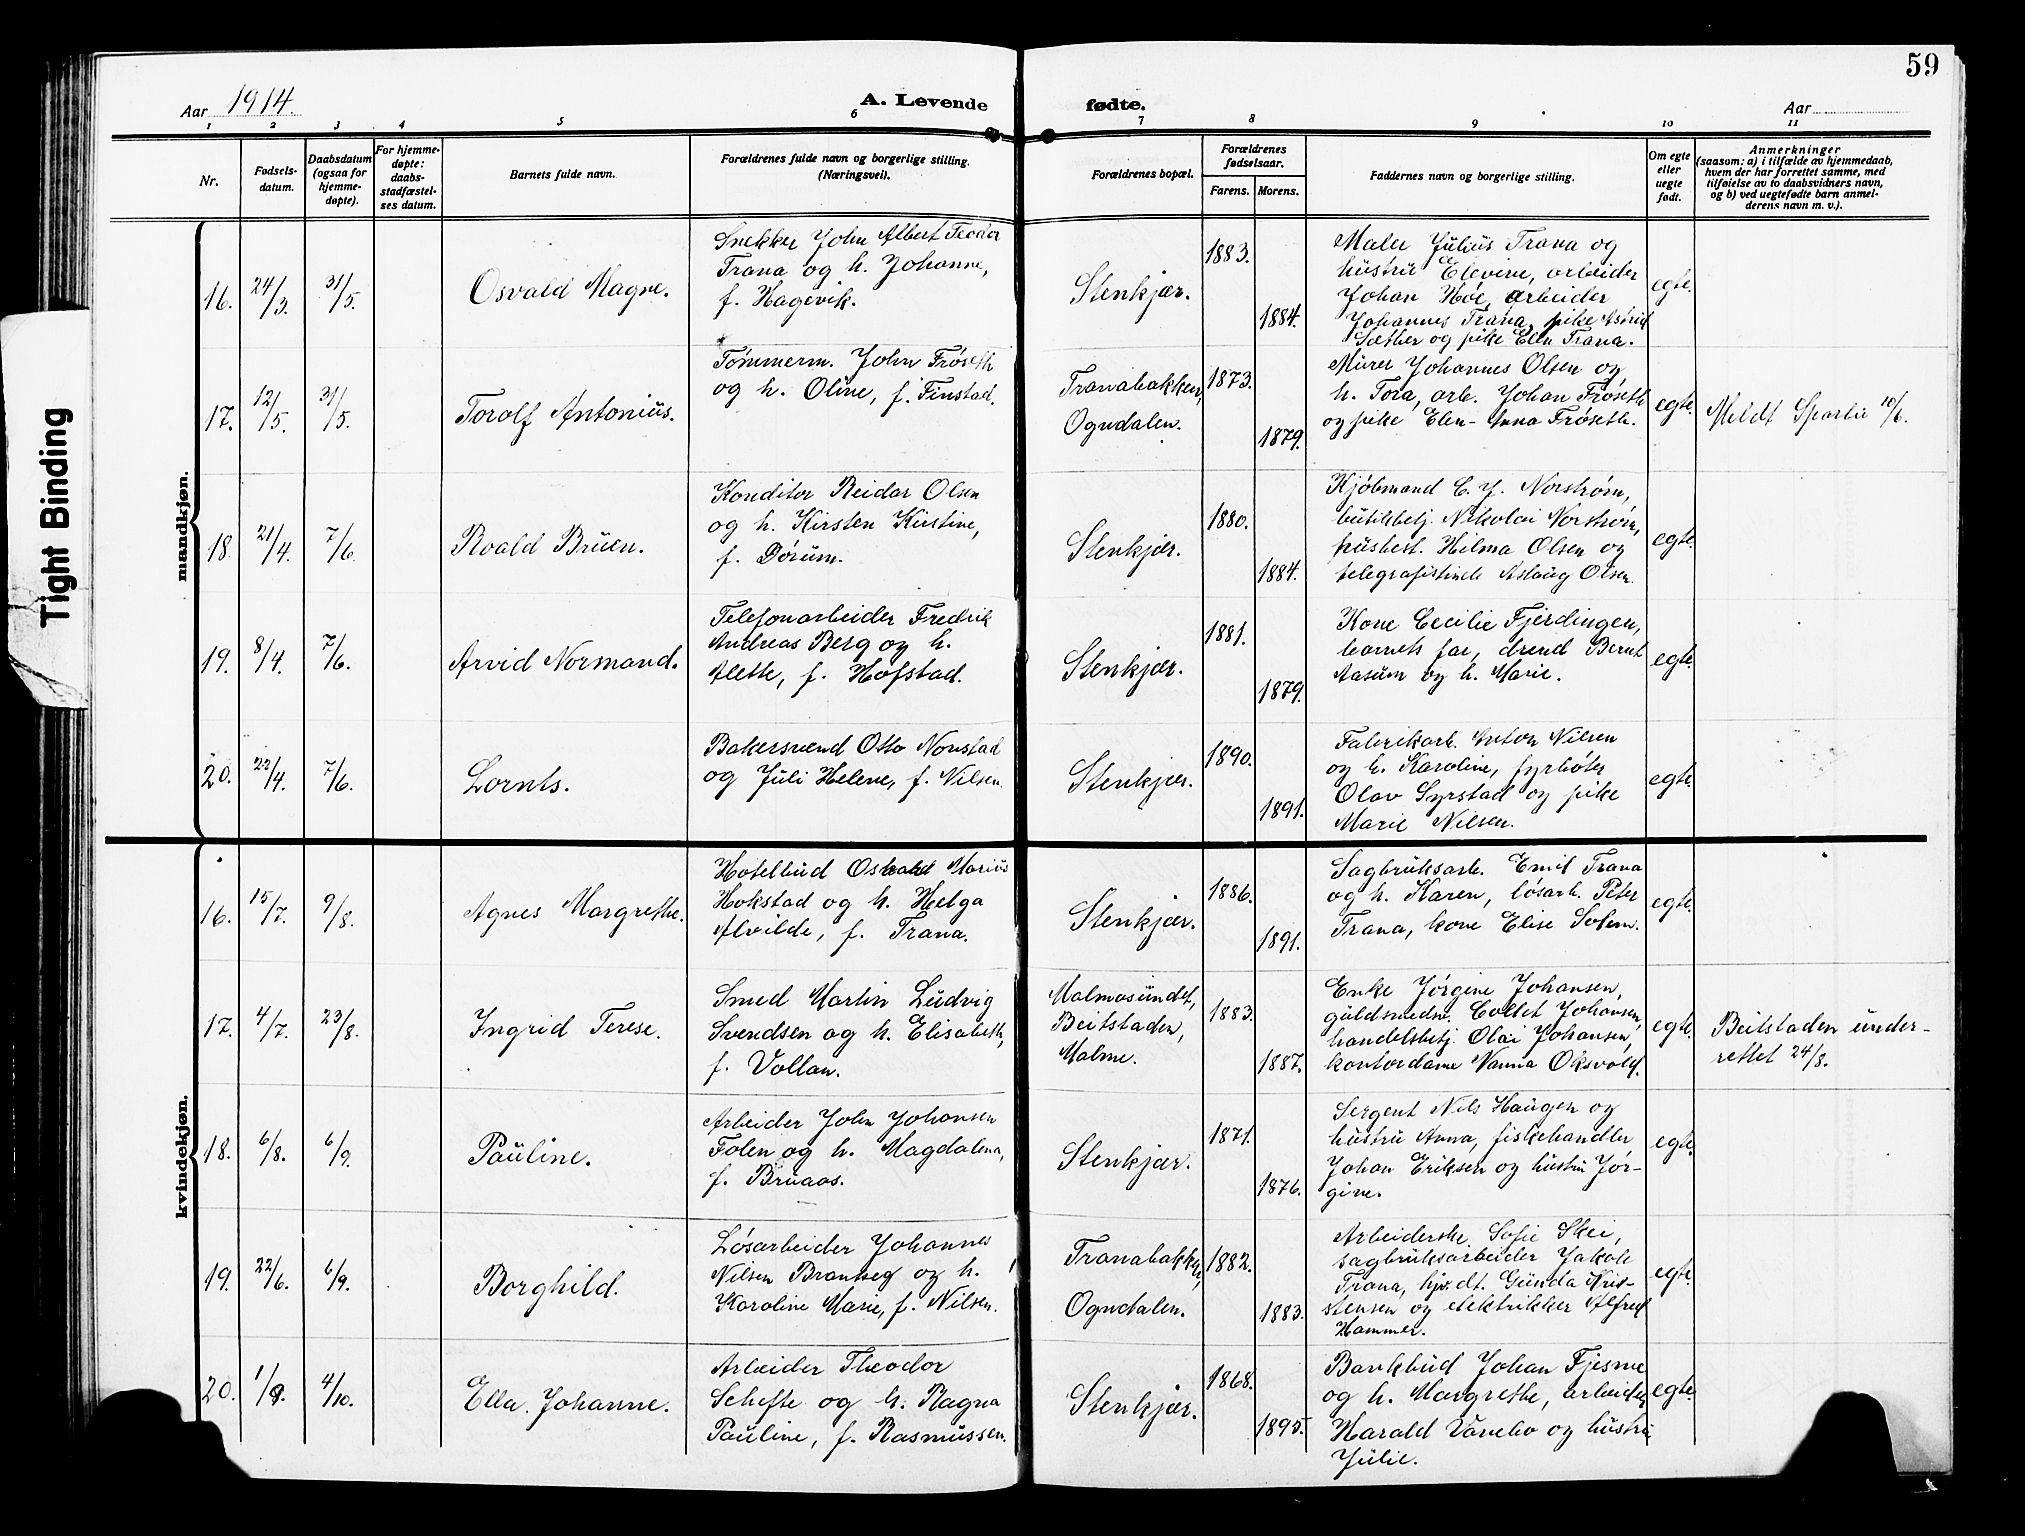 59
Aar 1914.
A. Levende fødte.
Aar
1 2 3 4 5 6 7 8 9 10 11
Nr.
Fødsels-
datum.
Daabsdatum
(ogsaa for
hjemme-
døpte).
For hjemme-
døpte:
daabs-
stadfæstel-
ses datum.
Barnets fulde navn.
Forældrenes fulde navn og borgerlige stilling.
(Næringsvei).
Forældrenes bopæl.
Forældrenes
fødselsaar.
Farens. Morens.
Faddernes navn og borgerlige stilling.
Om egte
eller
uegte
født.
Anmerkninger
(saasom: a) i tilfælde av hjemmedaab,
hvem der har forrettet samme, med
tilføielse av to daabsvidners navn,
og b) ved uegtefødte barn anmel-
derens navn m. v.).
Tight Binding
mandkjøn.
16. 24/3. 31/5. Osvald Magne.
Snekker John Albert Teodor
Trana og h. Johanne,
f. Hagevik.
Stenkjær.
1883.
1884.
Maler Julius Trana og
hustru Elevine, arbeider
Johan Hoe, arbeider
Johannes Trana, pike Astrid
Sæther og pike Elen Trana.
egte.
17. 12/5. 31/5. Torolf Antonius.
Tømmerm. John Frøseth
og h. Oline, f. Finstad.
Tranabakken,
Ogndalen.
1873.
1879.
Murer Johannes Olsen og
h. Tora, arb. Johan Frøseth
og pike Elen-Anna Frøseth.
egte.
Meldt Sparbu 10/6.
18. 21/4. 7/6. Roald Bruen.
Konditor Reidar Olsen
og h. Kirsten Kirstine,
f. Dørum.
Stenkjær.
1880.
1884.
Kjøbmand C. J. Norstrøm,
butikbetj. Nikolai Norstrøm,
husbest. Hilma Olsen og
telegrafistinde Aslaug Olsen.
egte.
19. 8/4. 7/6. Arvid Normand.
Telefonarbeider Fredrik
Andreas Berg og h.
Alette, f. Hofstad.
Stenkjær.
1881.
1879.
Kone Cecilie Fjerdingen,
barnets far, dreng Bernt
Aasum og h. Marie.
egte.
20. 22/4. 7/6. Lornts.
Bakersvend Otto Norstad
og Juli Helene, f. Nilsen.
Stenkjær.
1890.
1891.
Fabrikarb. Anton Nilsen
og h. Karoline, fyrbøter
Olav Syrstad og pike
Marie Nilsen.
egte.
kvindekjøn.
16. 15/7. 9/8. Agnes Margrethe.
Hotelbud Oskald Marius
Hokstad og h. Helga
Alvilde, f. Trana.
Stenkjær.
1886.
1891.
Sagbruksarb. Emil Trana
og h. Karen, løsarb. Peter
Trana, kone Elise Solem.
egte.
17. 4/7. 23/8. Ingrid Terese.
Smed Martin Ludvig
Svendsen og h. Elisabeth,
f. Vollan.
Malmosundet,
Beitstaden,
Malme.
1883.
1887.
Enke Jørgine Johansen,
guldsmedm. Collet Johansen,
handelsbetj. Olai Johansen,
kontordame Nanna Oksvold.
egte.
Beitstaden under-
rettet 24/8.
18. 6/8. 6/9. Pauline.
Arbeider John Johansen
Folen og h. Magdalena,
f. Bruaas.
Stenkjær.
1871.
1876.
Sergent Nils Haugen og
hustru Anna, fiskehandler
Johan Eriksen og hustru Jør-
gine.
egte.
19. 22/6. 6/9. Borghild.
Løsarbeider Johannes
Nilsen Branheg og h.
Karoline Marie, f. Nilsen.
Tranabakken,
Ogndalen.
1882.
1883.
Arbeiderske Sofie Skei,
sagbruksarbeider Jakob
Trana, hjv.dt. Gunda Kris-
stensen og elektrikker Alfred
Hammer.
egte.
20. 1/9. 4/10. Ella Johanne.
Arbeider Theodor
Schefte og h. Ragna
Pauline, f. Rasmussen.
Stenkjær.
1868.
1895.
Bankbud Johan Fjesme
og h. Margrethe, arbeider
Harald Vanebo og hustru
Julie.
egte.